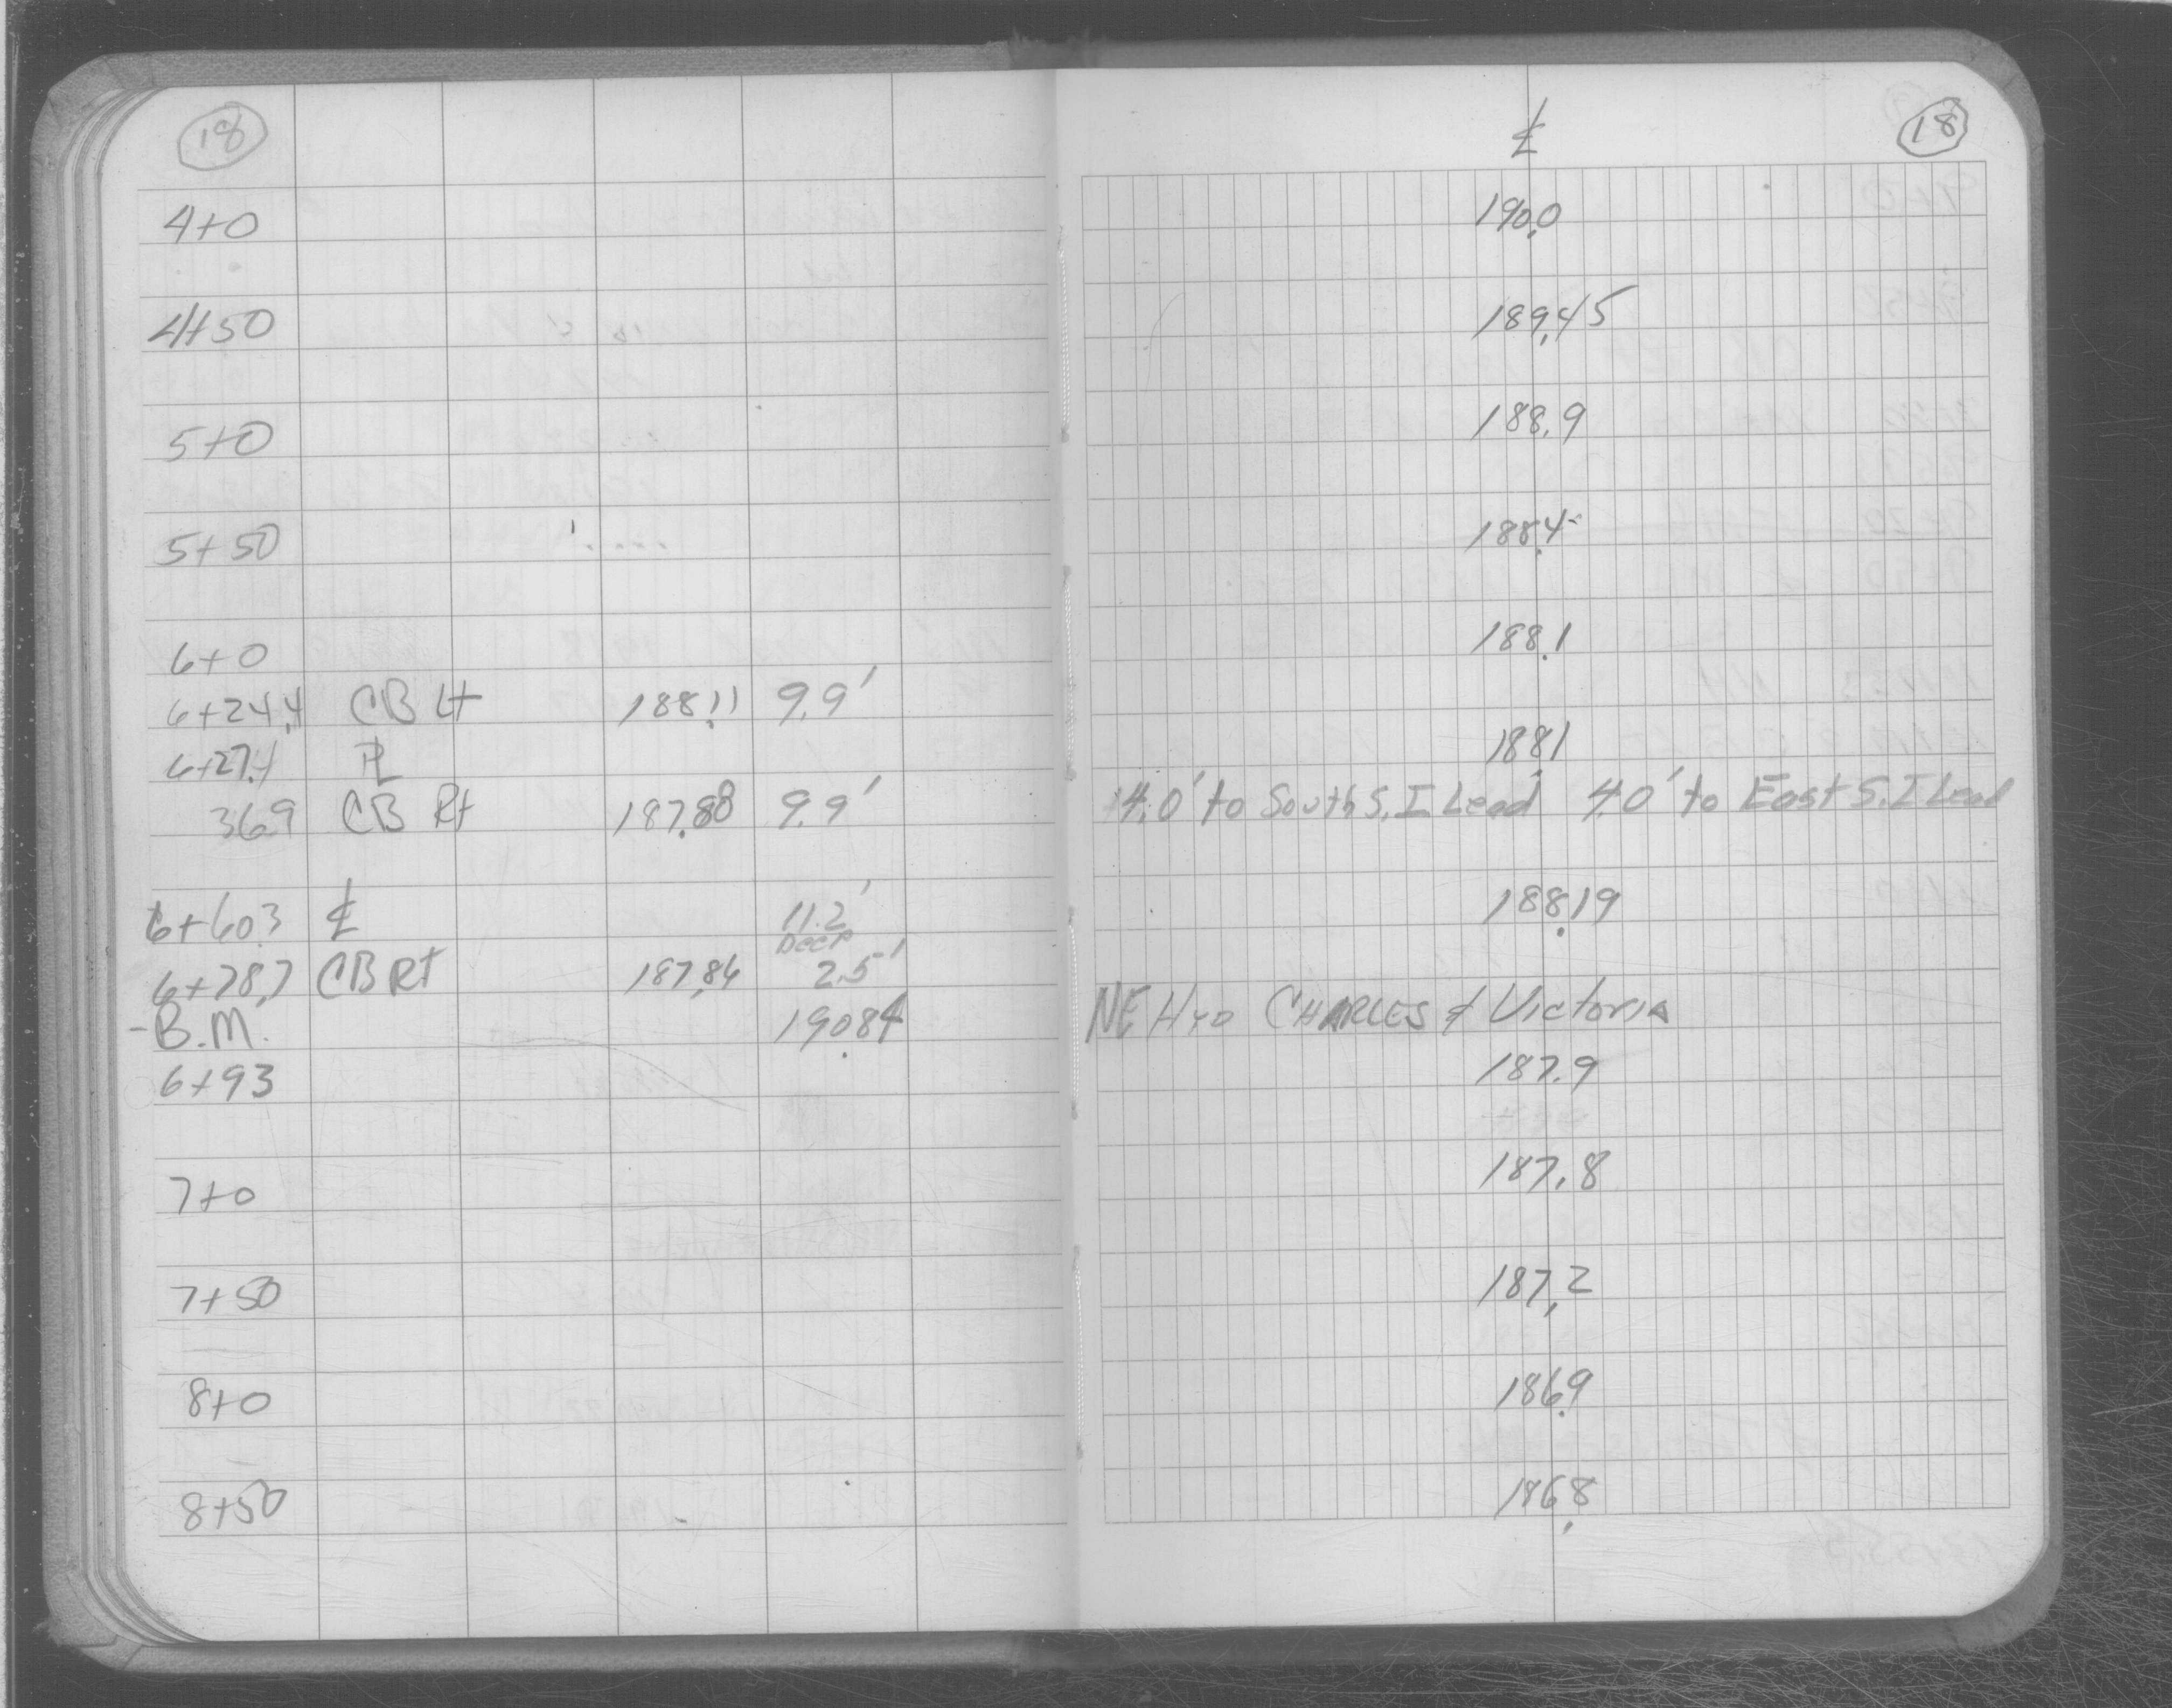 18 ℄ 18
4+0 190.0
4+50 189.45
5+0 188.9
5+50 188.4
6+0 188.1
6+24.4 CB Lt 188.11 9.9' 188.1
6+27.4 PL
36.9 CB Rt 187.88 9.9' 4.0' to South S.I Lead 4.0' to East S.I Lead
6+60.3 ℄ 11.2' 188.19
Deep
6+78.7 CB Rt 187.86 2.5'
-B.M. 190.84 NE Hyd CHARLES & Victoria
6+93 187.9
7+0 187.8
7+50 187.2
8+0 186.9
8+50 186.8